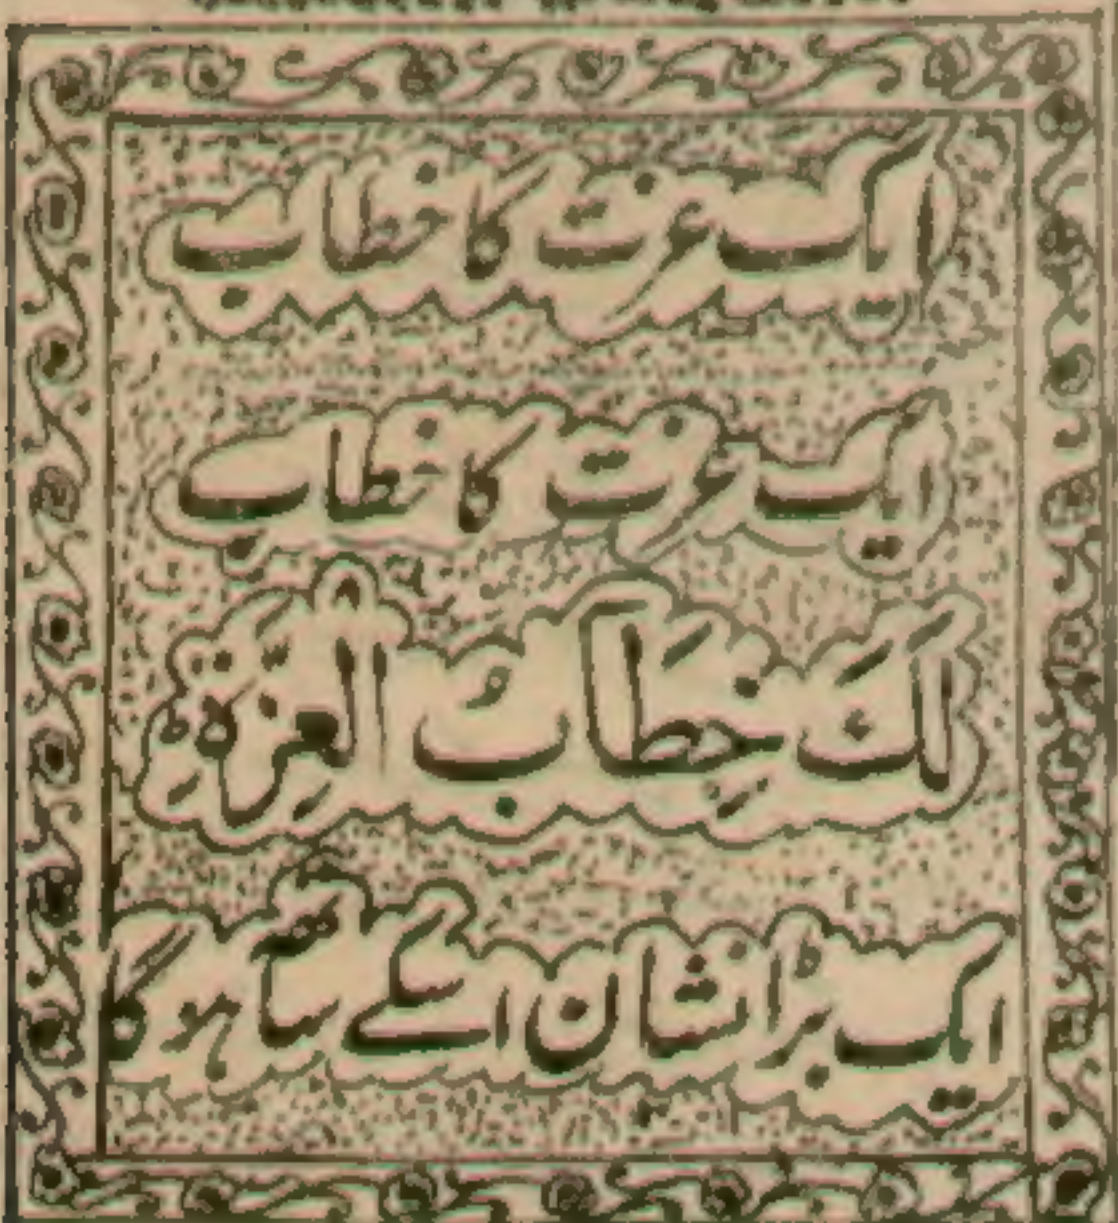 ایک عزت کا خطاب
ایک عزت کا خطاب
لَکَ خِطَابُ الْعِزَّةِ
ایک بڑا نشان اسکے ساتھ ہوگا